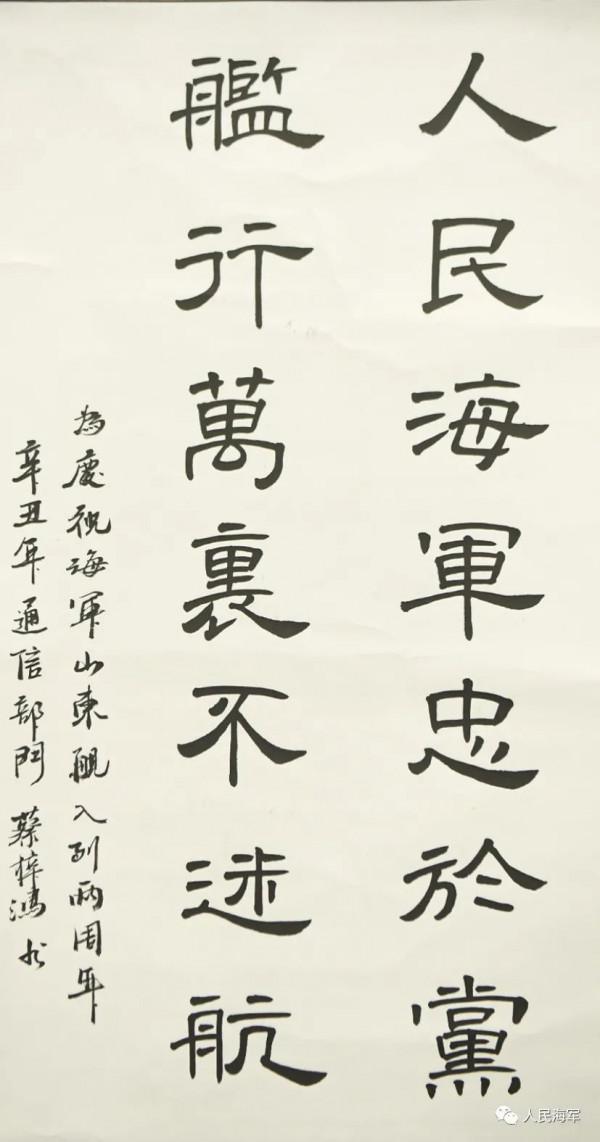 人民海軍忠於黨
艦行萬裏不迷航
為慶祝海軍山東艦入列兩周年
辛丑年通信部門 蔡梓鴻书
人民海军